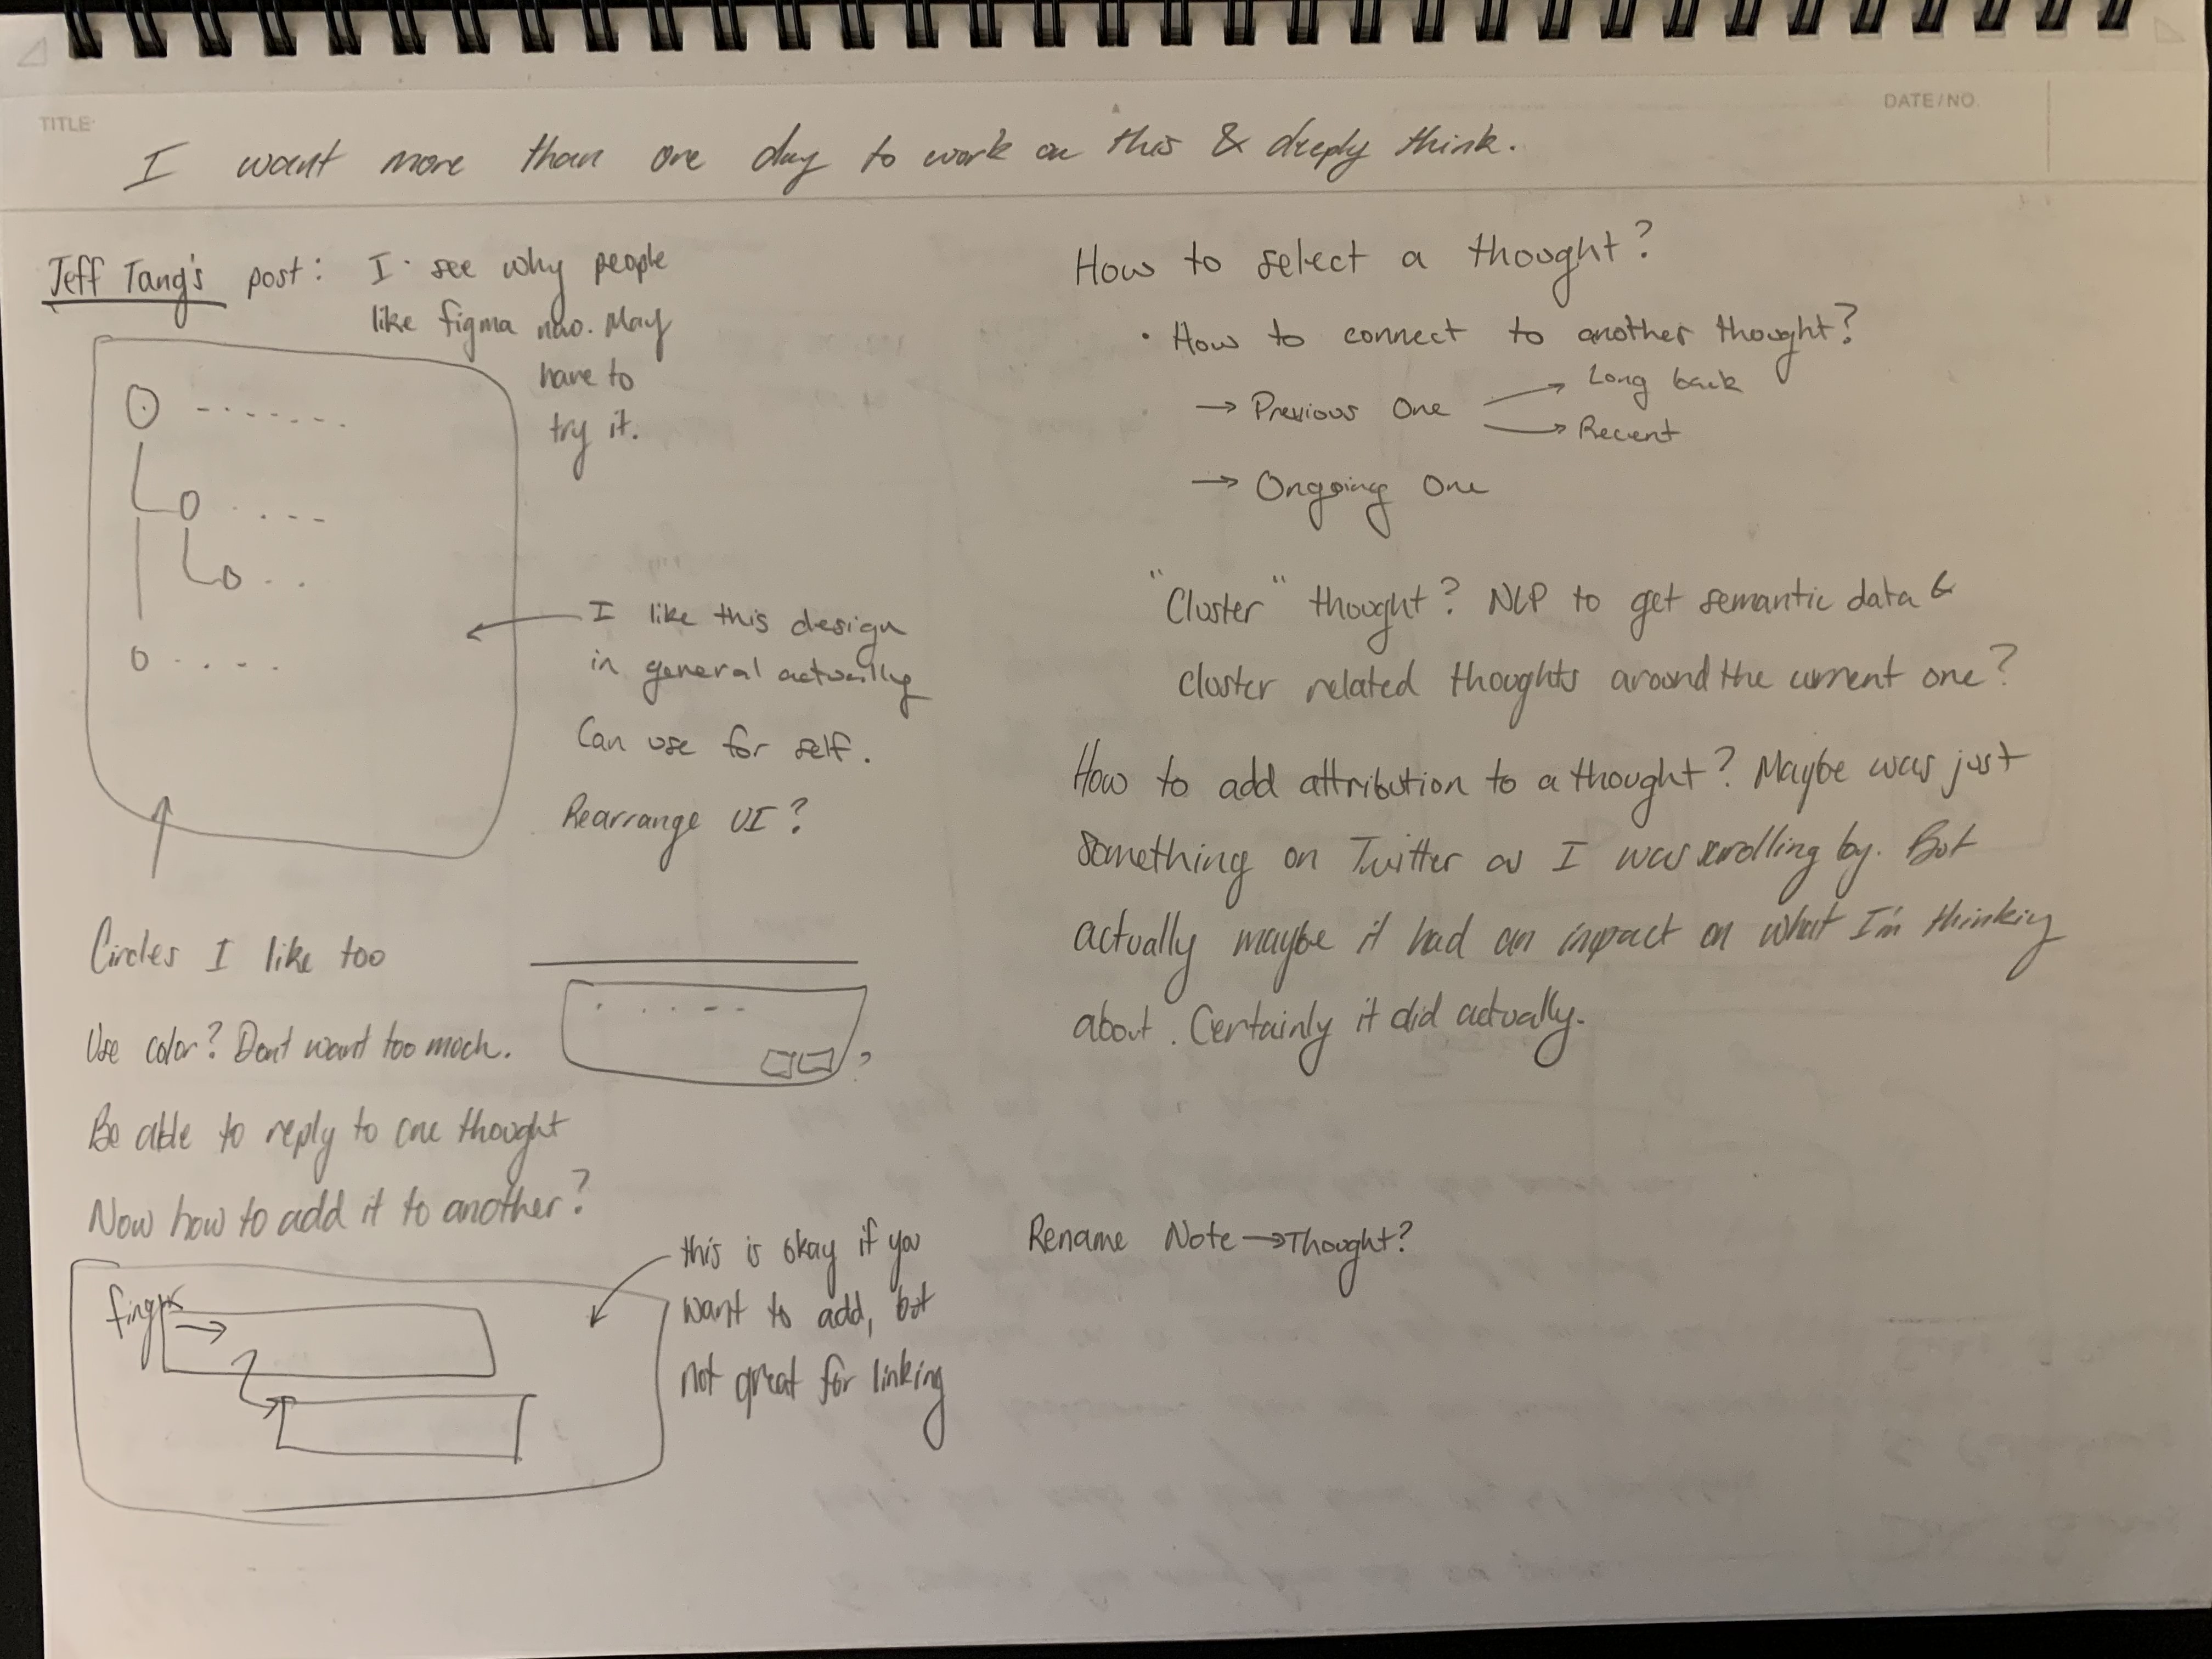 TITLE:
DATE/NO.
I want more than one day to work on this & deeply think.
Jeff Tang's post: I see why people
like figma now. May
have to
try it.
I like this design
in general actually
Can use for self.
Rearrange UI?
Circles I like too
Use color? Dont want too much.
?
Be able to reply to one thought
Now how to add it to another?
finger
this is okay if you
want to add, but
not great for linking
How to select a thought?
• How to connect to another thought?
→ Previous One → Long back
→ Recent
→ Ongoing One
"Cluster" thought? NLP to get semantic data &
cluster related thoughts around the current one?
How to add attribution to a thought? Maybe was just
something on Twitter as I was scrolling by. But
actually maybe it had an impact on what I'm thinking
about. Certainly it did actually.
Rename Note → Thought?